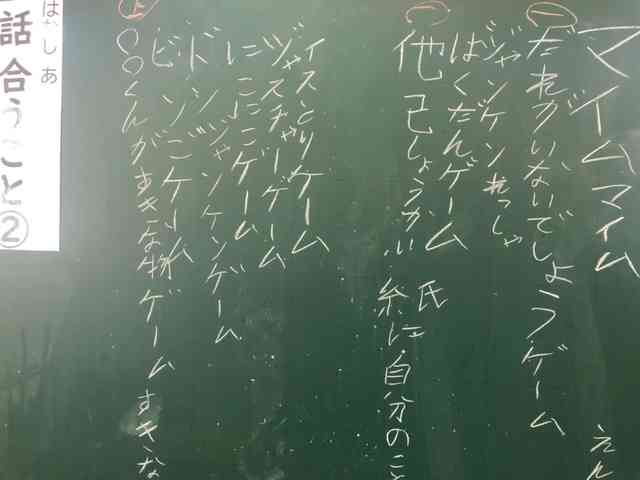 マイムマイム
えん
一
だれがいないでしょうゲーム
ジャンケンれっしゃ
ばくだんゲーム
氏
一
他己しょうかい
糸に自分のこ
イスとりゲーム
ジャスチャーゲーム
にこにこゲーム
ドンジャンケンゲーム
ビンゴゲーム
上
○○くんがすきな物ゲーム すきな
はな し あ
話合うこと②